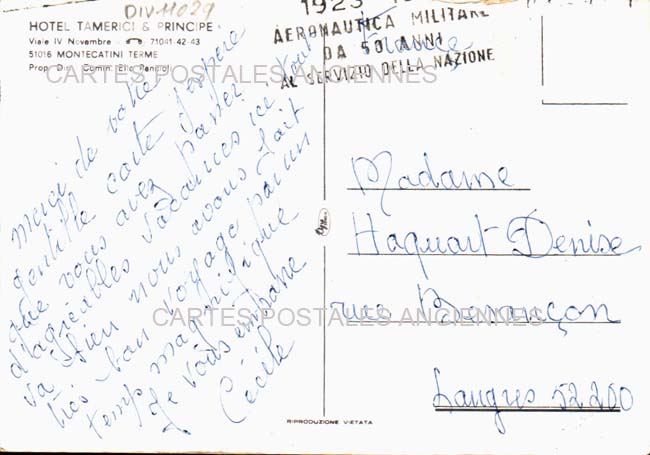 DIV11029
HOTEL TAMERICI & PRINCIPE
Viale IV Novembre - ☎ 71041-42-43
51016 MONTECATINI TERME
Prop. Dir. Comm.
1923
AERONAUTICA MILITARE
DA 50 ANNI
AL SERVIZIO DELLA NAZIONE
France
CARTES POSTALES ANCIENNES
merci de votre
gentille carte j'espère
que vous avez passer
d'agréables vacances ici tout
va bien nous avons fait
très bon voyage par un
temps magnifique
je vous embrasse
Cécile
Madame
Haquart Denise
rue Barançon
Langres 52200
CARTES POSTALES ANCIENNES
RIPRODUZIONE VIETATA